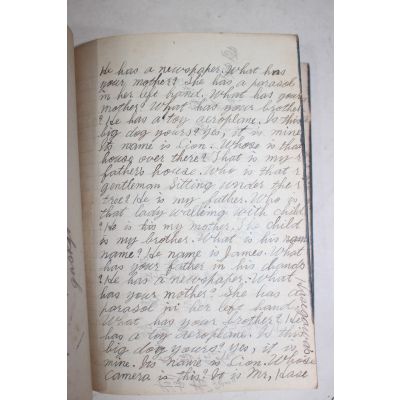 He has a newspaper. What has
your mother? She has a parasol
in her left hand. What has your
mother? What has your brother
? He has a toy aeroplane. Is this
big dog yours? Yes, it is mine
Its name is Lion. Whose is that
house over there? That is my
father's house. Who is that
gentleman sitting under the
tree? He is my father. Who is
that lady walking with child
? He is my mother. The child
is my brother. What is his name
name? He name is James. What
has your father in his hands
? He has a newspaper. What
has your mother? She has a
parasol in her left hand.
What has your brother? He
has a toy aeroplane. Is this
big dog yours? Yes, it is
mine. Its name is Lion. Whose
camera is this? It is Mr, Kase